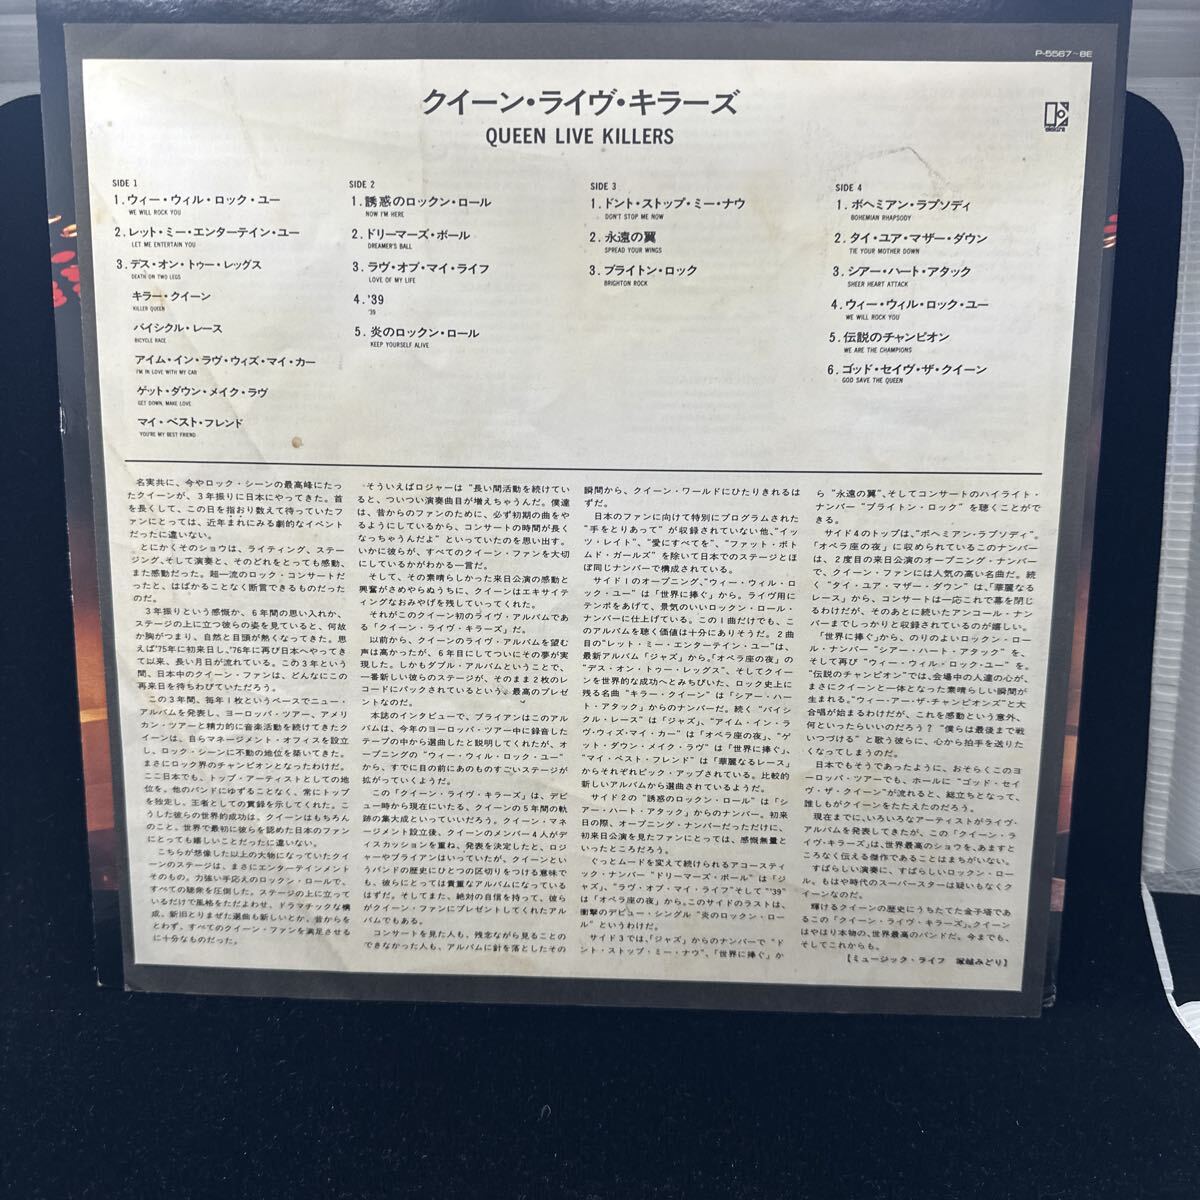 P-5567~8E
クイーン・ライヴ・キラーズ
QUEEN LIVE KILLERS
elektra
SIDE 1
1.ウィー・ウィル・ロック・ユー
WE WILL ROCK YOU
2.レット・ミー・エンターテイン・ユー
LET ME ENTERTAIN YOU
3.デス・オン・トゥー・レッグス
DEATH ON TWO LEGS
キラー・クイーン
KILLER QUEEN
バイシクル・レース
BICYCLE RACE
アイム・イン・ラヴ・ウィズ・マイ・カー
I'M IN LOVE WITH MY CAR
ゲット・ダウン・メイク・ラヴ
GET DOWN, MAKE LOVE
マイ・ベスト・フレンド
YOU'RE MY BEST FRIEND
SIDE 2
1.誘惑のロックン・ロール
NOW I'M HERE
2.ドリーマーズ・ボール
DREAMER'S BALL
3.ラヴ・オブ・マイ・ライフ
LOVE OF MY LIFE
4.'39
'39
5.炎のロックン・ロール
KEEP YOURSELF ALIVE
SIDE 3
1.ドント・ストップ・ミー・ナウ
DON'T STOP ME NOW
2.永遠の翼
SPREAD YOUR WINGS
3.ブライトン・ロック
BRIGHTON ROCK
SIDE 4
1.ボヘミアン・ラプソディ
BOHEMIAN RHAPSODY
2.タイ・ユア・マザー・ダウン
TIE YOUR MOTHER DOWN
3.シアー・ハート・アタック
SHEER HEART ATTACK
4.ウィー・ウィル・ロック・ユー
WE WILL ROCK YOU
5.伝説のチャンピオン
WE ARE THE CHAMPIONS
6.ゴッド・セイヴ・ザ・クイーン
GOD SAVE THE QUEEN
名実共に、今やロック・シーンの最高峰にたっ
たクイーンが、3年振りに日本にやってきた。首
を長くして、この日を指おり数えて待っていたフ
ァンにとっては、近年まれにみる劇的なイベント
だったに違いない。
とにかくそのショウは、ライティング、ステー
ジング、そして演奏と、そのどれをとっても感動、
また感動だった。超一流のロック・コンサートだ
ったと、はばかることなく断言できるものだった
のだ。
3年振りという感慨か、6年間の思い入れか、
ステージの上に立つ彼らの姿を見ていると、何故
か胸がつまり、自然と目頭が熱くなってきた。思
えば'75年に初来日し、'76年に再び日本へやってき
て以来、長い月日が流れている。この3年という
間、日本中のクイーン・ファンは、どんなにこの
再来日を待ちわびていただろう。
この3年間、毎年1枚というペースでニュー・
アルバムを発表し、ヨーロッパ・ツアー、アメリ
カン・ツアーと精力的に音楽活動を続けてきたク
イーンは、自らマネージメント・オフィスを設立
し、ロック・シーンに不動の地位を築いてきた。
まさにロック界のチャンピオンとなったわけだ。
ここ日本でも、トップ・アーティストとしての地
位を、他のバンドにゆずることなく、常にトップ
を独走し、王者としての貫録を示してくれた。こ
うした彼らの世界的成功は、クイーンはもちろん
のこと、世界で最初に彼らを認めた日本のファン
にとっても嬉しいことだったに違いない。
こちらが想像した以上の大物になっていたクイ
ーンのステージは、まさにエンターテインメント
そのもの。力強い手応えのロックン・ロールで、
すべての聴衆を圧倒した。ステージの上に立って
いるだけで風格をただよわせ、ドラマチックな構
成。新旧とりまぜた選曲も新しいとか、昔からを
とわず、すべてのクイーン・ファンを満足させる
に十分なものだった。
そういえばロジャーは“長い間活動を続けてい
ると、ついつい演奏曲目が増えちゃうんだ。僕達
は、昔からのファンのために、必ず初期の曲をや
るようにしているから、コンサートの時間が長く
なっちゃうんだよ”といっていたのを思い出す。
いかに彼らが、すべてのクイーン・ファンを大切
にしているかがわかる一言だ。
そして、その素晴らしかった来日公演の感動と
興奮がさめやらぬうちに、クイーンはエキサイテ
ィングなおみやげを残していってくれた。
それがこのクイーン初のライヴ・アルバムであ
る「クイーン・ライヴ・キラーズ」だ。
以前から、クイーンのライヴ・アルバムを望む
声は高かったが、6年目にしてついにその夢が実
現した。しかもダブル・アルバムということで、
一番新しい彼らのステージが、そのまま2枚のレ
コードにパックされているという、最高のプレゼ
ントなのだ。
本誌のインタビューで、ブライアンはこのアル
バムは、今年のヨーロッパ・ツアー中に録音した
テープの中から選曲したと説明してくれたが、オ
ープニングの“ウィー・ウィル・ロック・ユー”
から、すでに目の前にあのものすごいステージが
拡がっていくようだ。
この「クイーン・ライヴ・キラーズ」は、デビ
ュー時から現在にいたる、クイーンの5年間の軌
跡の集大成といっていいだろう。クイーン・マネ
ージメント設立後、クイーンのメンバー4人がデ
ィスカッションを重ね、発表を決定したと、ロジ
ャーやブライアンはいっていたが、クイーンとい
うバンドの歴史にひとつの区切りをつける意味で
も、彼らにとっては貴重なアルバムになっている
はずだ。そしてまた、絶対の自信を持って、彼ら
がクイーン・ファンにプレゼントしてくれたアル
バムでもある。
コンサートを見た人も、残念ながら見ることの
できなかった人も、アルバムに針を落としたその
瞬間から、クイーン・ワールドにひたりきれるは
ずだ。
日本のファンに向けて特別にプログラムされた
“手をとりあって”が収録されていない他、“イッ
ツ・レイト”、“愛にすべてを”、“ファット・ボト
ムド・ガールズ”を除いて日本でのステージとほ
ぼ同じナンバーで構成されている。
サイド1のオープニング、“ウィー・ウィル・ロ
ック・ユー”は「世界に捧ぐ」から。ライヴ用に
テンポをあげて、景気のいいロックン・ロール・
ナンバーに仕上げている。この1曲だけでも、こ
のアルバムを聴く価値は十分にありそうだ。2曲
目の“レット・ミー・エンターテイン・ユー”は、
最新アルバム「ジャズ」から。「オペラ座の夜」の
“デス・オン・トゥー・レッグス”、そしてクイー
ンを世界的な成功へとみちびいた、ロック史上に
残る名曲“キラー・クイーン”は「シアー・ハー
ト・アタック」からのナンバーだ。続く“バイシ
クル・レース”は「ジャズ」、“アイム・イン・ラ
ヴ・ウィズ・マイ・カー”は「オペラ座の夜」、“ゲ
ット・ダウン・メイク・ラヴ”は「世界に捧ぐ」、
“マイ・ベスト・フレンド”は「華麗なるレース」
からそれぞれピック・アップされている。比較的
新しいアルバムから選曲されているようだ。
サイド2の“誘惑のロックン・ロール”は「シ
アー・ハート・アタック」からのナンバー。初来
日の際、オープニング・ナンバーだっただけに、
初来日公演を見たファンにとっては、感慨無量と
いったところだろう。
ぐっとムードを変えて続けられるアコースティ
ック・ナンバー“ドリーマーズ・ボール”は「ジ
ャズ」、“ラヴ・オブ・マイ・ライフ”そして“'39”
は「オペラ座の夜」から。このサイドのラストは、
衝撃のデビュー・シングル“炎のロックン・ロー
ル”というわけだ。
サイド3では、「ジャズ」からのナンバーで“ド
ント・ストップ・ミー・ナウ”、「世界に捧ぐ」か
ら“永遠の翼”、そしてコンサートのハイライト・
ナンバー“ブライトン・ロック”を聴くことがで
きる。
サイド4のトップは、“ボヘミアン・ラプソディ”。
「オペラ座の夜」に収められているこのナンバー
は、2度目の来日公演のオープニング・ナンバー
で、クイーン・ファンには人気の高い名曲だ。続
く“タイ・ユア・マザー・ダウン”は、「華麗なる
レース」から、コンサートは一応これで幕を閉じ
るわけだが、そのあとに続いたアンコール・ナン
バーまでしっかりと収録されているのが嬉しい。
「世界に捧ぐ」から、のりのよいロックン・ロー
ル・ナンバー“シアー・ハート・アタック”を、
そして再び“ウィー・ウィル・ロック・ユー”を。
“伝説のチャンピオン”では、会場中の人達の心が、
まさにクイーンと一体となった素晴らしい瞬間が
生まれる。“ウィー・アー・ザ・チャンピオンズ”と大
合唱が始まるわけだが、これを感動という意外、
何といったらいいのだろう？“僕らは最後まで戦
いつづける”と歌う彼らに、心から拍手を送りた
くなってしまうのだ。
日本でもそうであったように、おそらくこのヨ
ーロッパ・ツアーでも、ホールに“ゴッド・セイ
ヴ・ザ・クイーン”が流れると、総立ちとなって、
誰しもがクイーンをたたえたのだろう。
現在までに、いろいろなアーティストがライヴ・
アルバムを発表してきたが、この「クイーン・ラ
イヴ・キラーズ」は、世界最高のショウを、あますと
ころなく伝える傑作であることはまちがいない。
すばらしい演奏に、すばらしいロックン・ロー
ル。もはや時代のスーパースターは疑いもなくク
イーンなのだ。
輝けるクイーンの歴史にうちたてた金子塔であ
るこの「クイーン・ライヴ・キラーズ」。クイーン
はやはり本物の、世界最高のバンドだ。今までも、
そしてこれからも。
【ミュージック・ライフ 塚越みどり】